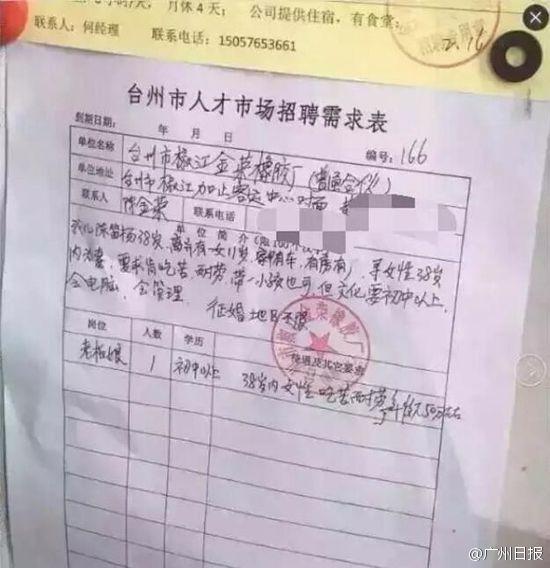 月休4天； 公司提供住宿，有食堂；
联系人：何经理 联系电话：15057653661
台州市人才市场招聘需求表
到期日期： 年 月 日 编号：166
单位名称 台州市椒江金荣橡胶厂（普通合伙）
单位地址 台州市椒江加止客运中心对面
联系人 陈金荣 联系电话
单位简介（限100个汉字）
38岁，离异有一女11岁，家中有车，有房有厂，寻女性38岁
内为妻，要求肯吃苦耐劳，带一小孩也可，但文化要初中以上，
会电脑，会管理。 征婚地区不限
岗位 人数 学历 待遇及其它要求
老板娘 1 初中以上 38岁内女性吃苦耐劳年薪50万左右
@广州日报